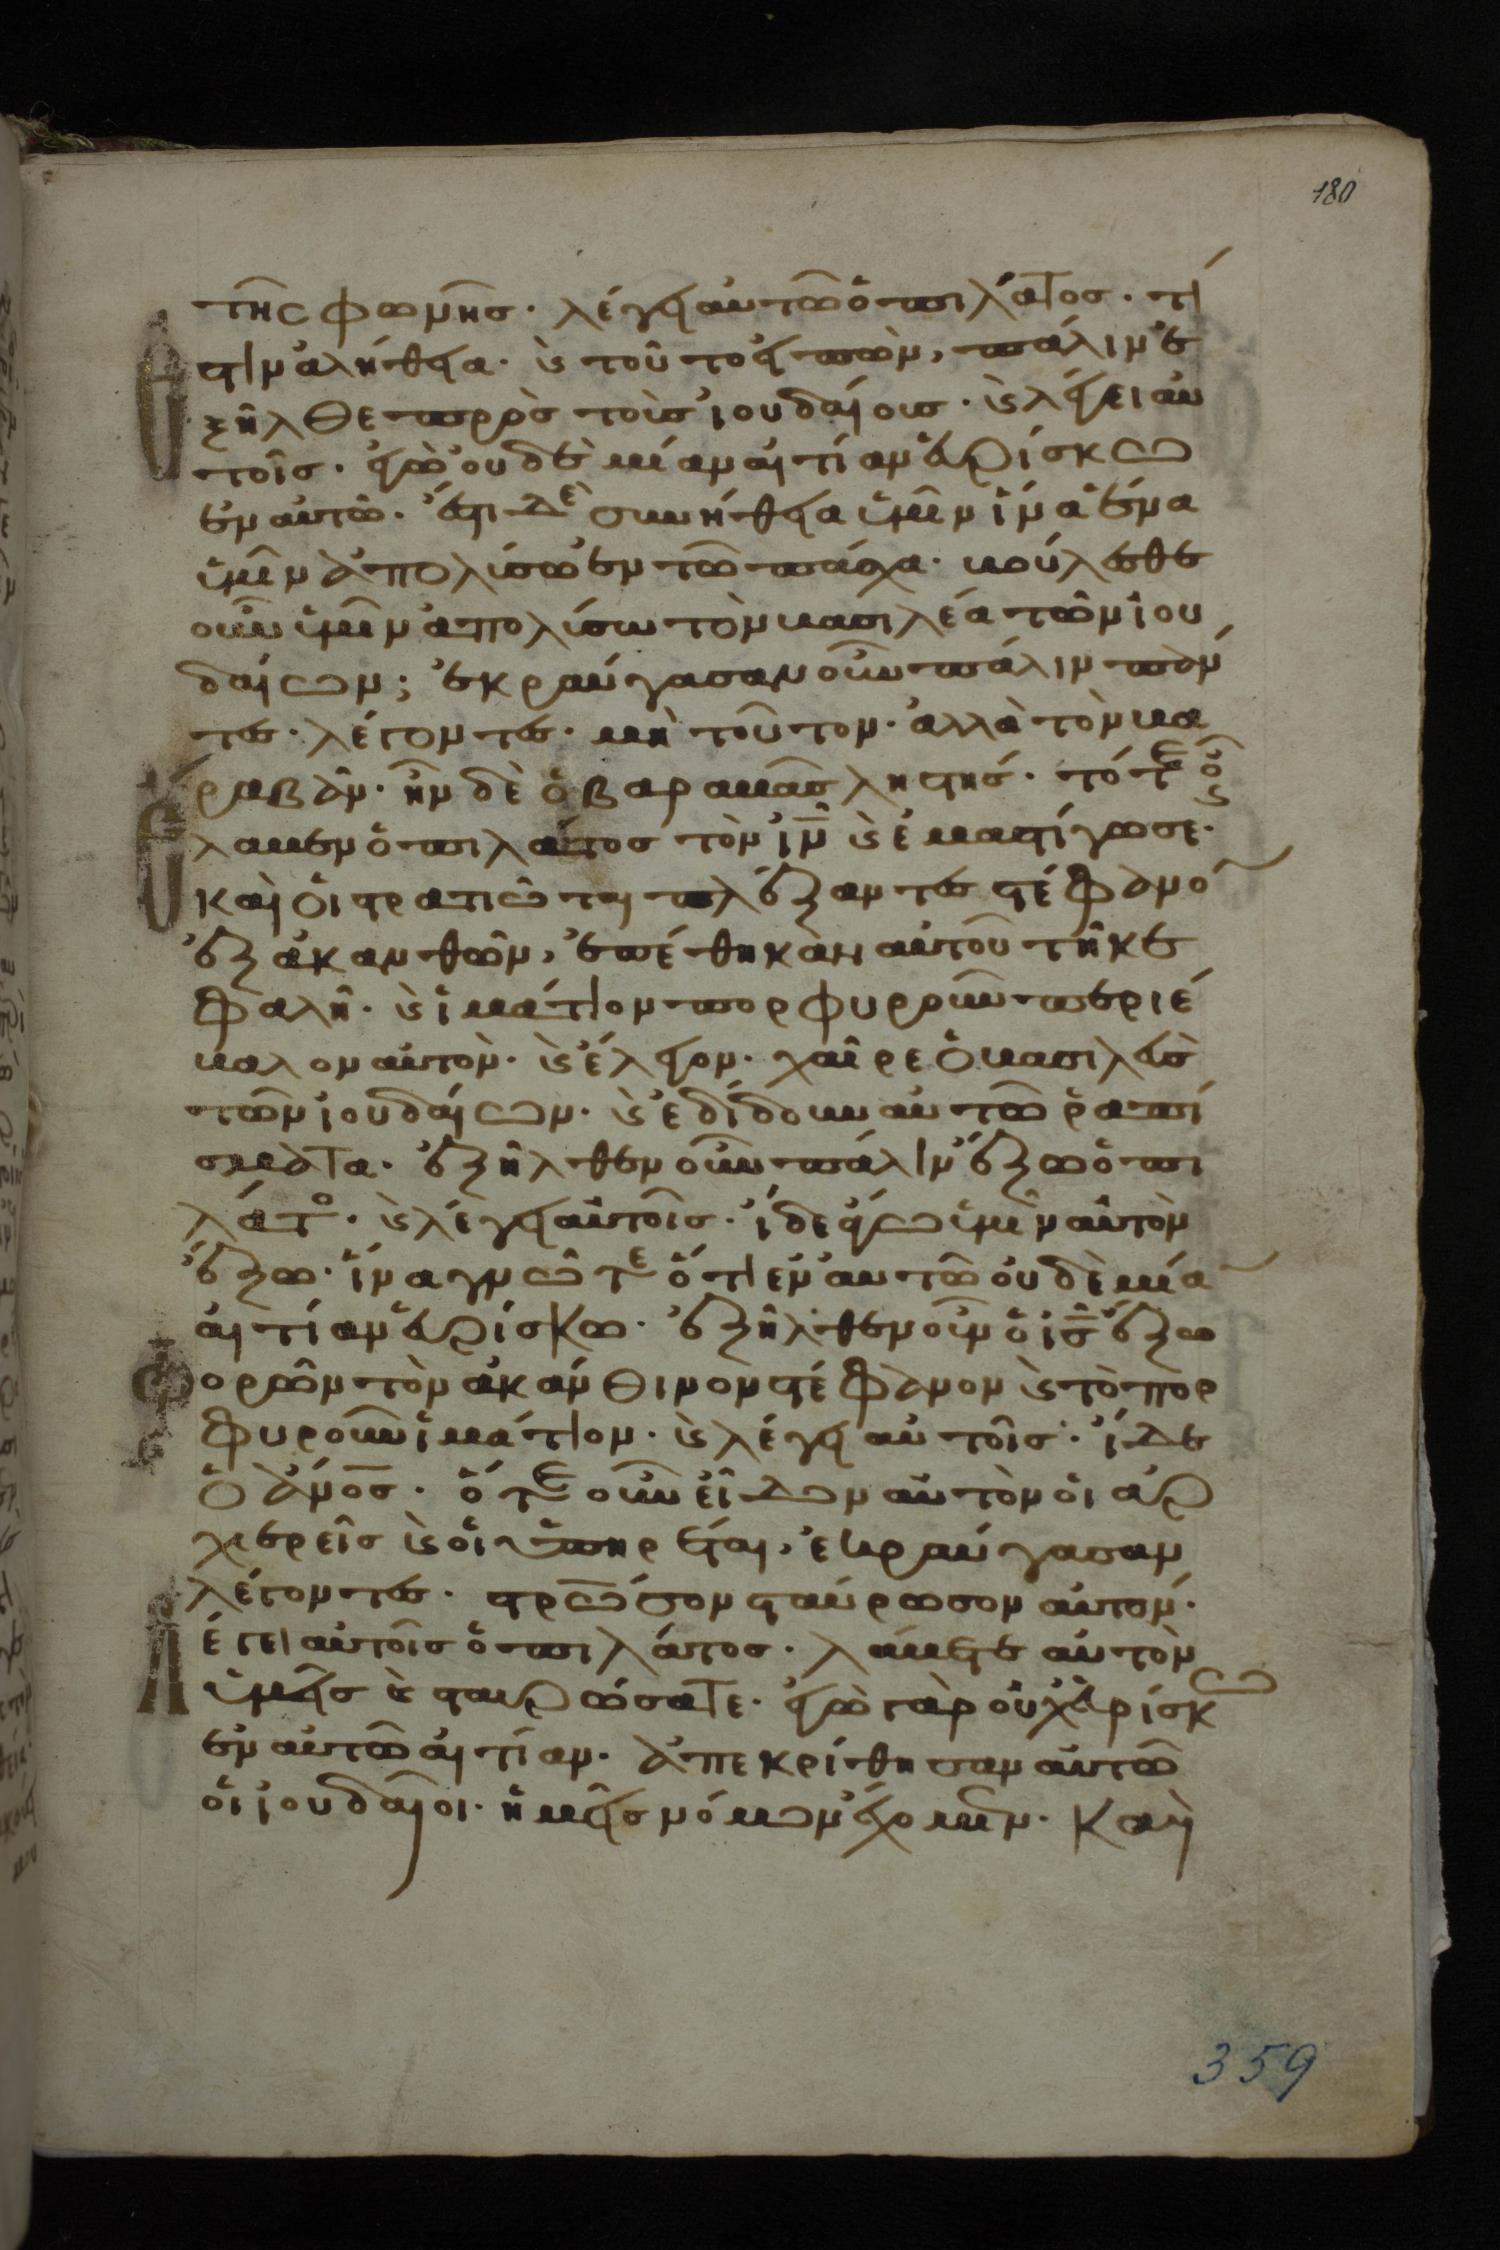 180
τῆς φωνῆς· λέγει αὐτῶ ὁ πιλάτος· τί
ἐστιν ἀλήθεια· κ τοῦτο εἰπὼν, πάλιν ἐ
ξῆλθε πρὸς τοὺς ἰουδαίους· κ λέγει αυ
τοῖς· ἐγὼ οὐδὲ μίαν αἰτίαν εὑρίσκω
ἐν αὐτῶ· ἔστι δὲ συνήθεια ὑμῖν ἵνα ἕνα
ὑμῖν ἀπολύσω ἐν τῶ πάσχα· βούλεσθε
οὖν ὑμῖν ἀπολύσω τὸν βασιλέα τῶν ἰου
δαίων; ἐκραύγασαν οὖν πάλιν πάν
τες· λέγοντες· μὴ τοῦτον· ἀλλὰ τὸν βα
ραβάν· ἦν δὲ ὁ βαραββᾶς ληστής· τότε οὖ
ἔλαβεν ὁ πιλάτος τὸν ἰν̄ κ ἐμαστίγωσε·
καὶ οἱ στρατιῶται πλέξαντες στέφανο
ἐξ ἀκανθῶν, ἐπέθηκαν αὐτοῦ τῆ κε
φαλῆ· κ ἱμάτιον πορφυροῦν περιέ
βαλον αὐτὸν· κ ἔλεγον· χαῖρε ὁ βασιλεὺς
τῶν ἰουδαίων· κ ἐδίδουν αὐτῶ ῥαπί
σματα· ἐξῆλθεν οὖν πάλιν ἔξω ὁ πι
λάτο· κ λέγει αὐτοῖς· ἴδε ἄγω ὑμῖν αὐτὸν
ἔξω· ἵνα γνῶτε ὅτι ἐν αὐτῶ οὐδὲ μία
αἰτίαν εὑρίσκω· ἐξῆλθεν οὖν ὁ ις̄ ἔξω
φορῶν τὸν ἀκάνθινον στέφανον κ τὸ πορ
φυροῦν ἱμάτιον· κ λέγει αὐτοῖς· ἴδε
ὁ ἄνο̄ς· ὅτε οὖν εἶδον αὐτὸν οἱ ἀρ
χιερεῖς κ οἱ ὑπηρέται, ἐκραύγασαν
λέγοντες· σταύρωσον σταύρωσον αὐτόν·
Λέγει αὐτοῖς ὁ πιλάτος· λάβετε αὐτὸν
ὑμεῖς κ σταυρώσατε· ἐγὼ γὰρ οὐχ εὑρίσκω
ἐν αὐτῶ αἰτίαν· ἀπεκρίθησαν αὐτῶ
οἱ ἰουδαῖοι· ἡμεῖς νόμον ἔχομεν· καὶ
359